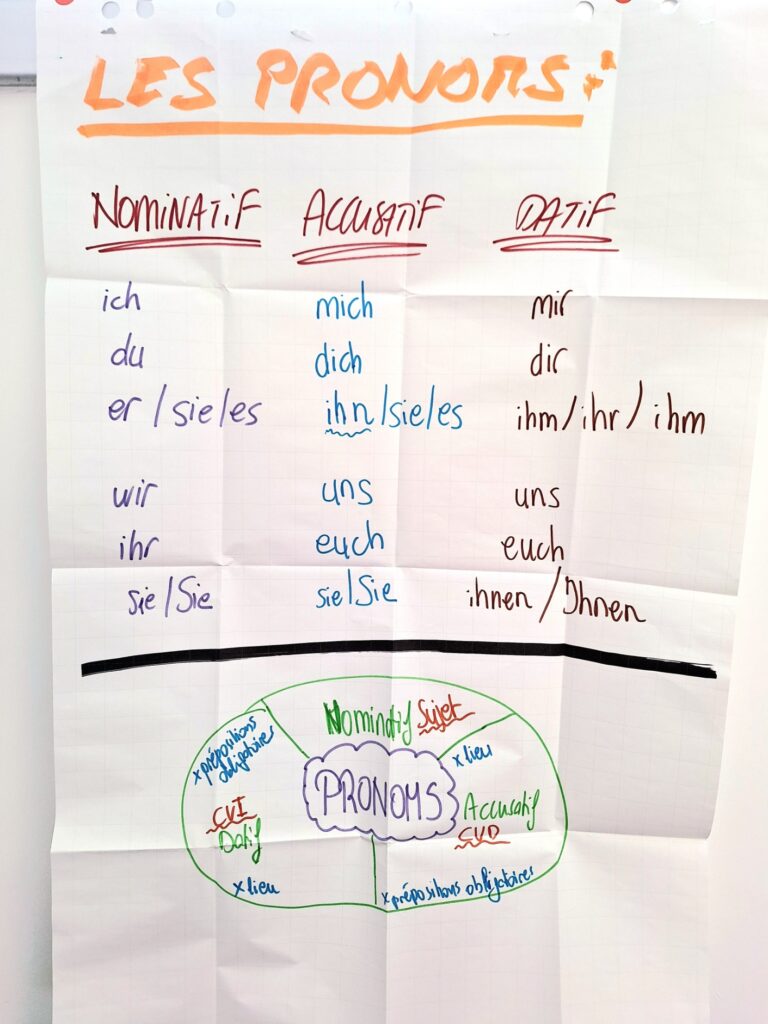 LES PRONOMS :
NOMINATIF ACCUSATIF DATIF
ich mich mir
du dich dir
er / sie / es ihn / sie / es ihm / ihr / ihm
wir uns uns
ihr euch euch
sie / Sie sie / Sie ihnen / Ihnen
Nominatif Sujet
x prépositions
obligatoires
x lieu
PRONOMS
CVI
Datif
Accusatif
CVD
x lieu
x prépositions obligatoires